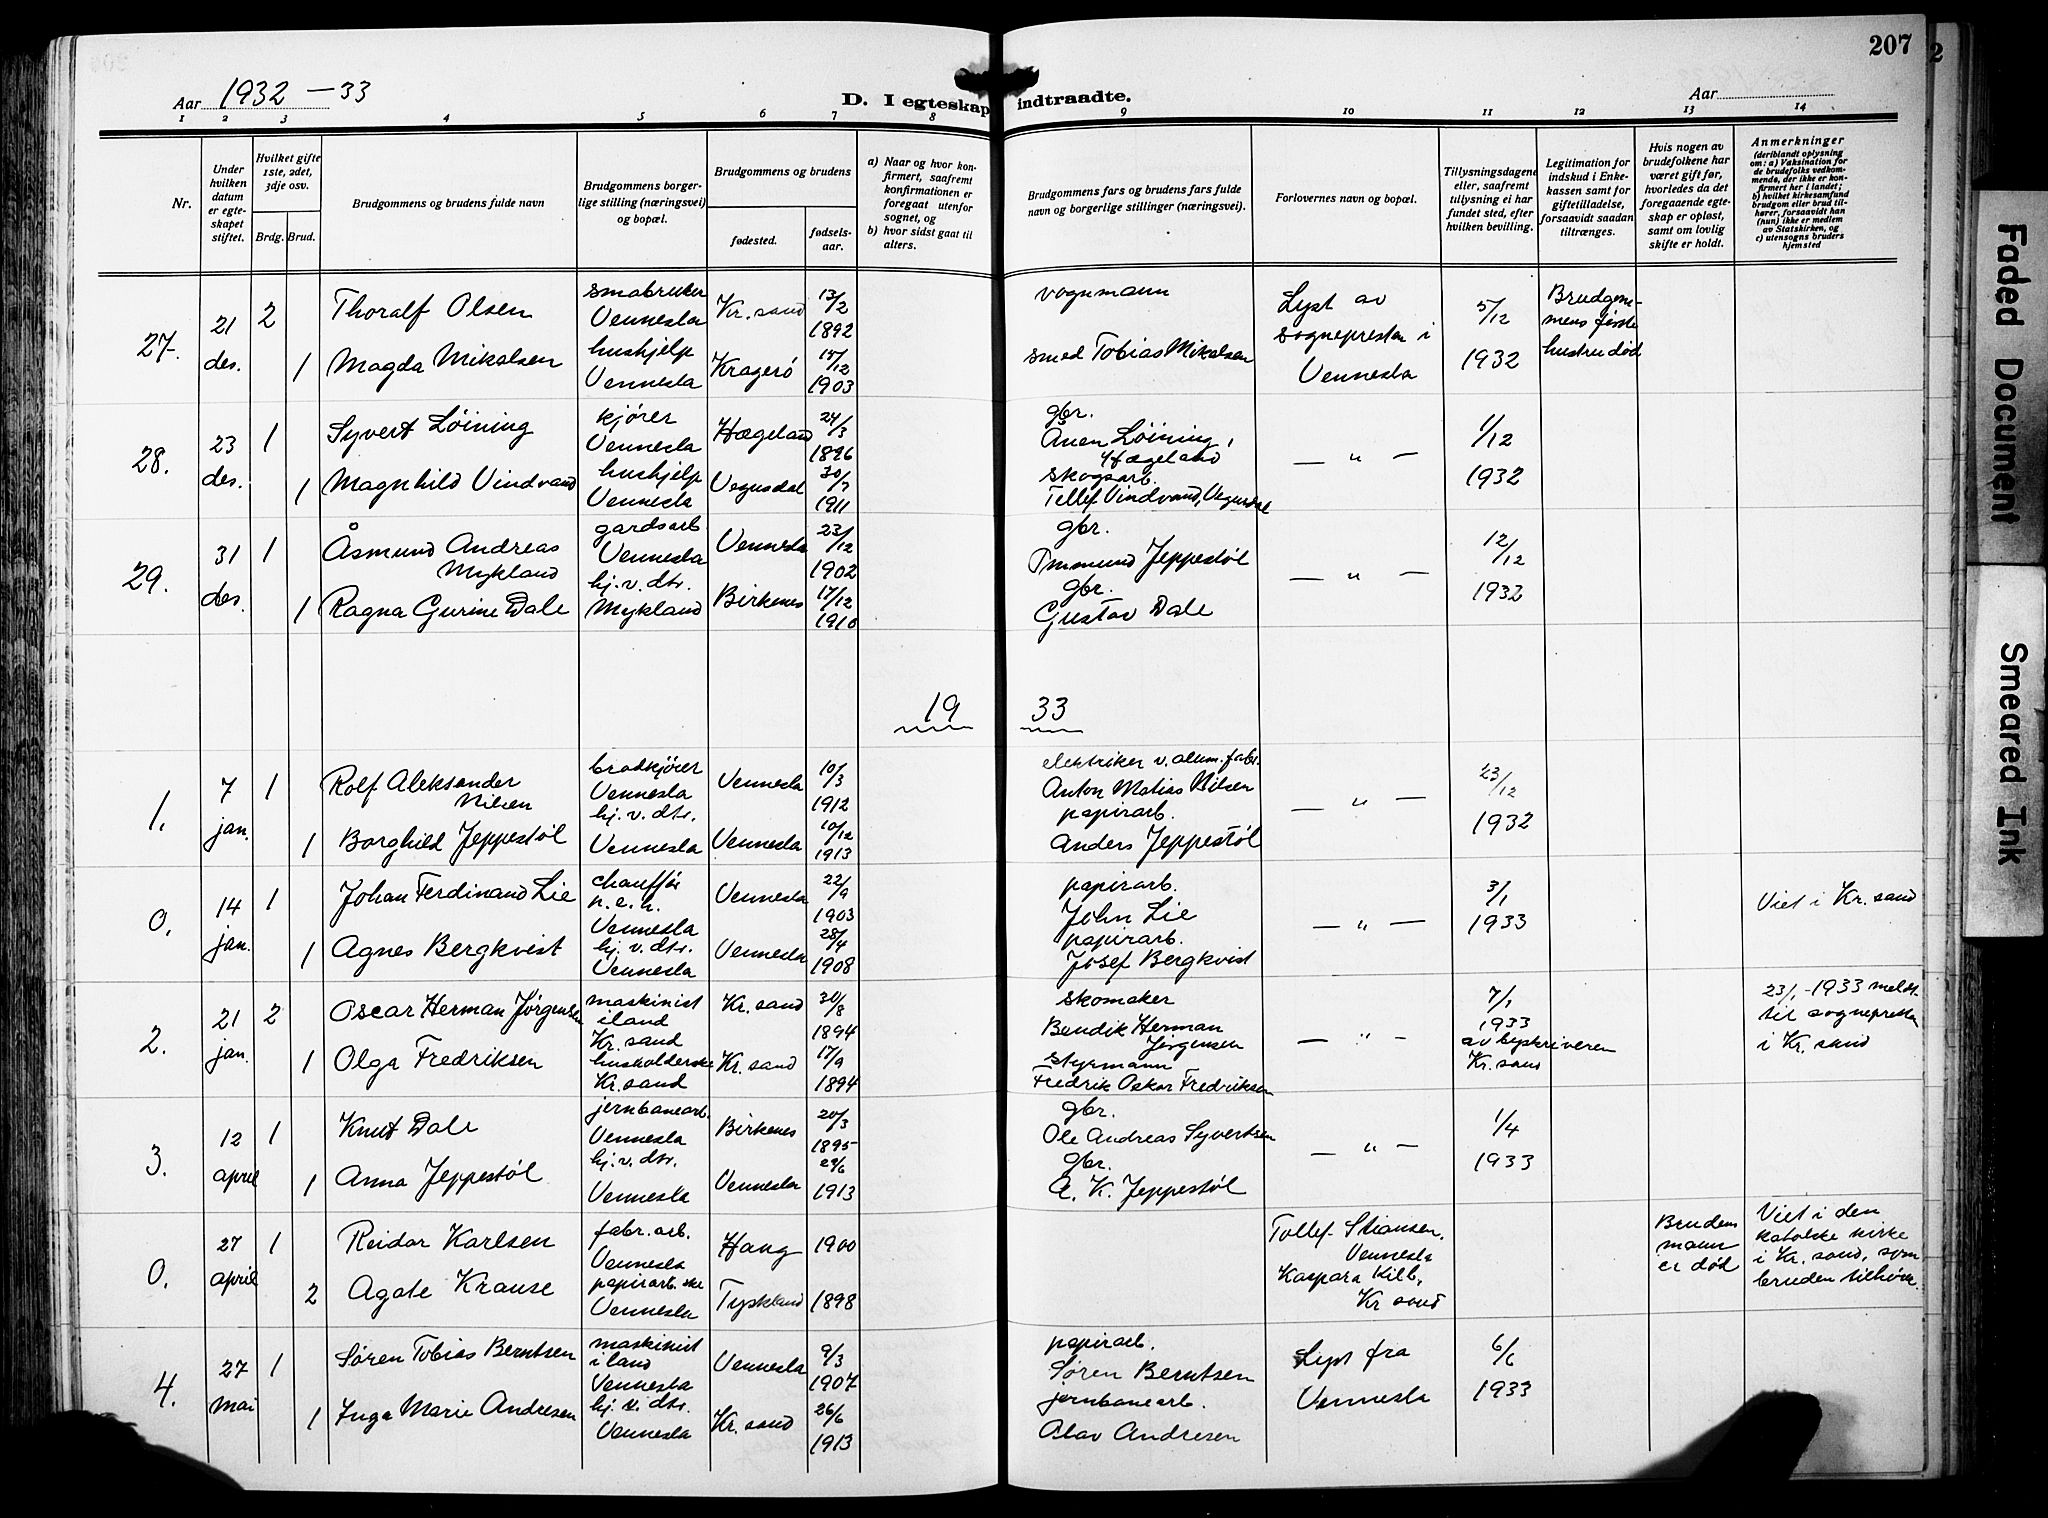 207
2
Aar 1932 – 33
D. I egteskap indtraadte.
Aar
1 2 3 4 5 6 7 8 9 10 11 12 13 14
Nr.
Under hvilken datum er egteskapet stiftet.
Hvilket gifte 1ste, 2det, 3dje osv.
Brdg. Brud.
Brudgommens og brudens fulde navn
Brudgommens borgerlige stilling (næringsvei) og bopæl.
Brudgommens og brudens
fødested.
fødselsaar.
a) Naar og hvor konfirmert, saafremt konfirmationen er foregaat utenfor sognet, og
b) hvor sidst gaat til alters.
Brudgommens fars og brudens fars fulde navn og borgerlige stillinger (næringsvei).
Forlovernes navn og bopæl.
Tillysningsdagene eller, saafremt tillysning ei har fundet sted, efter hvilken bevilling.
Legitimation for indskud i Enkekassen samt for giftetilladelse, forsaavidt saadan tiltrænges.
Hvis nogen av brudefolkene har været gift før, hvorledes da det foregaaende egteskap er opløst, samt om lovlig skifte er holdt.
Anmerkninger
(deriblandt oplysning om: a) Vaksination for de brudefolks vedkommende, der ikke er konfirmert her i landet; b) hvilket kirkesamfund brudgom eller brud tilhører, forsaavidt han (hun) ikke er medlem av Statskirken, og c) utensogns bruders hjemsted
27. 21 des. 2 Thoralf Olsen småbruker Vennesla Kr. sand 13/2 1892 vognmann Lyst av sognepresten i Vennesla 5/12 1932 Brudgommens første hustru død
1 Magda Mikalsen hushjelp Vennesla Kragerø 15/12 1903 smed Tobias Mikalsen
28. 23 des. 1 Syvert Løining kjører Vennesla Hægeland 24/3 1896 gbr. Ånen Løining, Hægeland — " — 1/12 1932
1 Magnhild Vindvand hushjelp Vennesla Vegusdal 30/7 1911 skogsarb. Tellef Vindvand, Vegusdal
29. 31 des. 1 Åsmund Andreas Mykland gardsarb. Vennesla Vennesla 23/12 1902 gbr. Jeppestøl — " — 12/12 1932
1 Ragna Gurine Dale hj. v. dtr. Mykland Birkenes 17/12 1910 gbr. Gustav Dale
19 33
1. 7 jan. 1 Rolf Aleksander Nilsen brødkjører Vennesla Vennesla 10/3 1912 elektriker v. alum. fabr. Anton Matias Nilsen — " — 23/12 1932
1 Borghild Jeppestøl hj. v. dtr. Vennesla Vennesla 10/12 1913 papirarb. Anders Jeppestøl
0. 14 jan. 1 Johan Ferdinand Lie chauffør Vennesla Vennesla 22/9 1903 papirarb. John Lie — " — 3/1 1933 Viet i Kr. sand
1 Agnes Bergkvist hj. v. dtr. Vennesla Vennesla 28/4 1908 papirarb. Josef Bergkvist
2. 21 jan. 2 Oscar Herman Jørgensen maskinist iland Kr. sand Kr. sand 30/8 1894 skomaker Bendik Herman Jørgensen — " — 7/1 1933 av byskriveren Kr. sand 23/1 – 1933 meldt til sognepresten i Kr. sand
1 Olga Fredriksen husholderske Kr. sand Kr. sand 17/9 1894 styrmann Fredrik Oskar Fredriksen
3. 12 april 1 Knut Dale jernbanearb. Vennesla Birkenes 20/3 1895 gbr. Ole Andreas Syvertsen — " — 1/4 1933
1 Anna Jeppestøl hj. v. dtr. Vennesla Vennesla 29/6 1913 gbr. A. K. Jeppestøl
0. 27 april 1 Reidar Karlsen fabr. arb. Vennesla Haug 1900 Tollef Stiansen, Vennesla Brudens mann er død Viet i den katolske kirke i Kr. sand, som bruden tilhører.
2 Agate Krause papirarb. ske Vennesla Tyskland 1898 Kaspara Kilb, Kr sand
4. 27 mai 1 Søren Tobias Berntsen maskinist i land Vennesla Vennesla 9/3 1907 papirarb. Søren Berntsen Lyst fra Vennesla 6/6 1933
1 Inga Marie Andresen hj. v. dtr. Vennesla Kr. sand 26/6 1913 jernbanearb. Olav Andresen
Faded Document
Smeared Ink